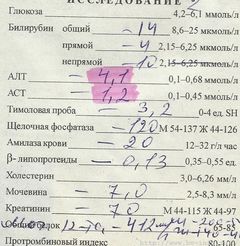 ИССЛЕДОВАНИЕ
Глюкоза 4,2–6,1 ммоль/л
Билирубин общий – 14 8,6–25 мкмоль/л
прямой – 4 2,15–6,25 мкмоль/л
непрямой – 10 2,15–6,25 мкмоль/л
АЛТ – 4,1 0,1–0,68 ммоль/л
АСТ – 1,2 0,1–0,45 ммоль/л
Тимоловая проба – 3,2 0-4 ед. SH
Щелочная фосфатаза – 190 М 54-137 Ж 44-126
Амилаза крови – 20 12–32 г/л час
β - липопротеиды – 0,13 0,35–0,55 ед.
Холестерин 3,0–6,26 мм/л
Мочевина – 7,0 2,5-8,3 мм/л
Креатинин – 70 М 44-115 Ж 44-97
65-85
Протромбиновый индекс 80-100